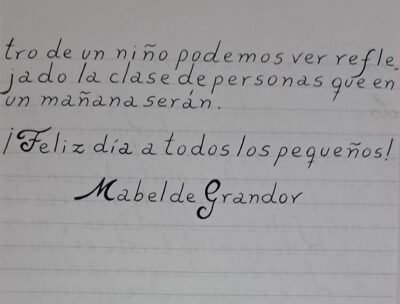 tro de un niño podemos ver refle_
jado la clase de personas que en
un mañana serán.
¡Feliz día a todos los pequeños!
Mabel de Grandor